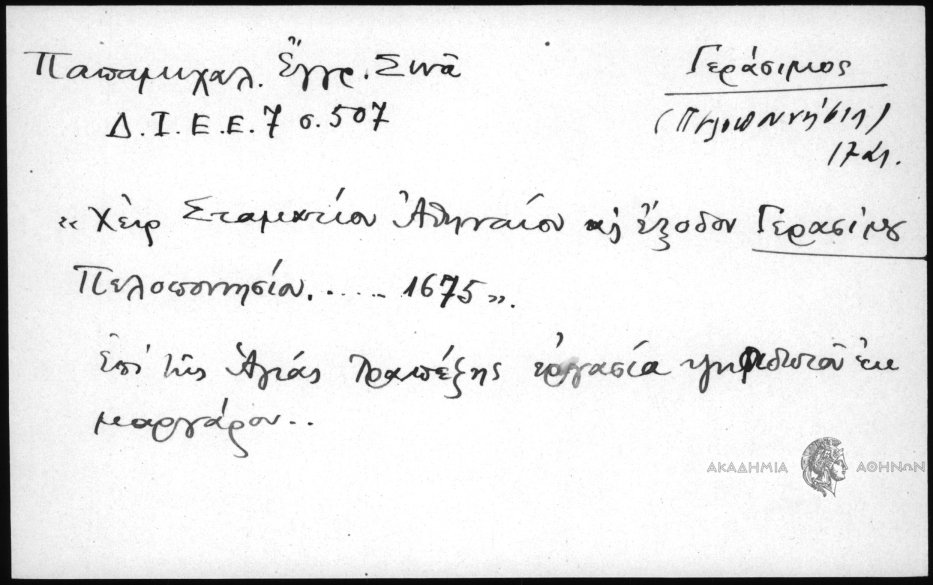 Παπαμιχαλ. Ἔγγρ. Σινᾶ
Δ. Ι. Ε. Ε. 7 σ. 507
Γεράσιμος
(Πελοποννήσιος)
17 αι.
"Χεὶρ Σταματίου Ἀθηναίου καὶ ἔξοδον Γερασίμου
Πελοποννησίου. .... 1675".
Ἐπὶ τῆς Ἁγίας Τραπέζης ἐργασία ψηφιδωτοῦ ἐκ
μαργάρου..
ΑΚΑΔΗΜΙΑ ΑΘΗΝΩΝ